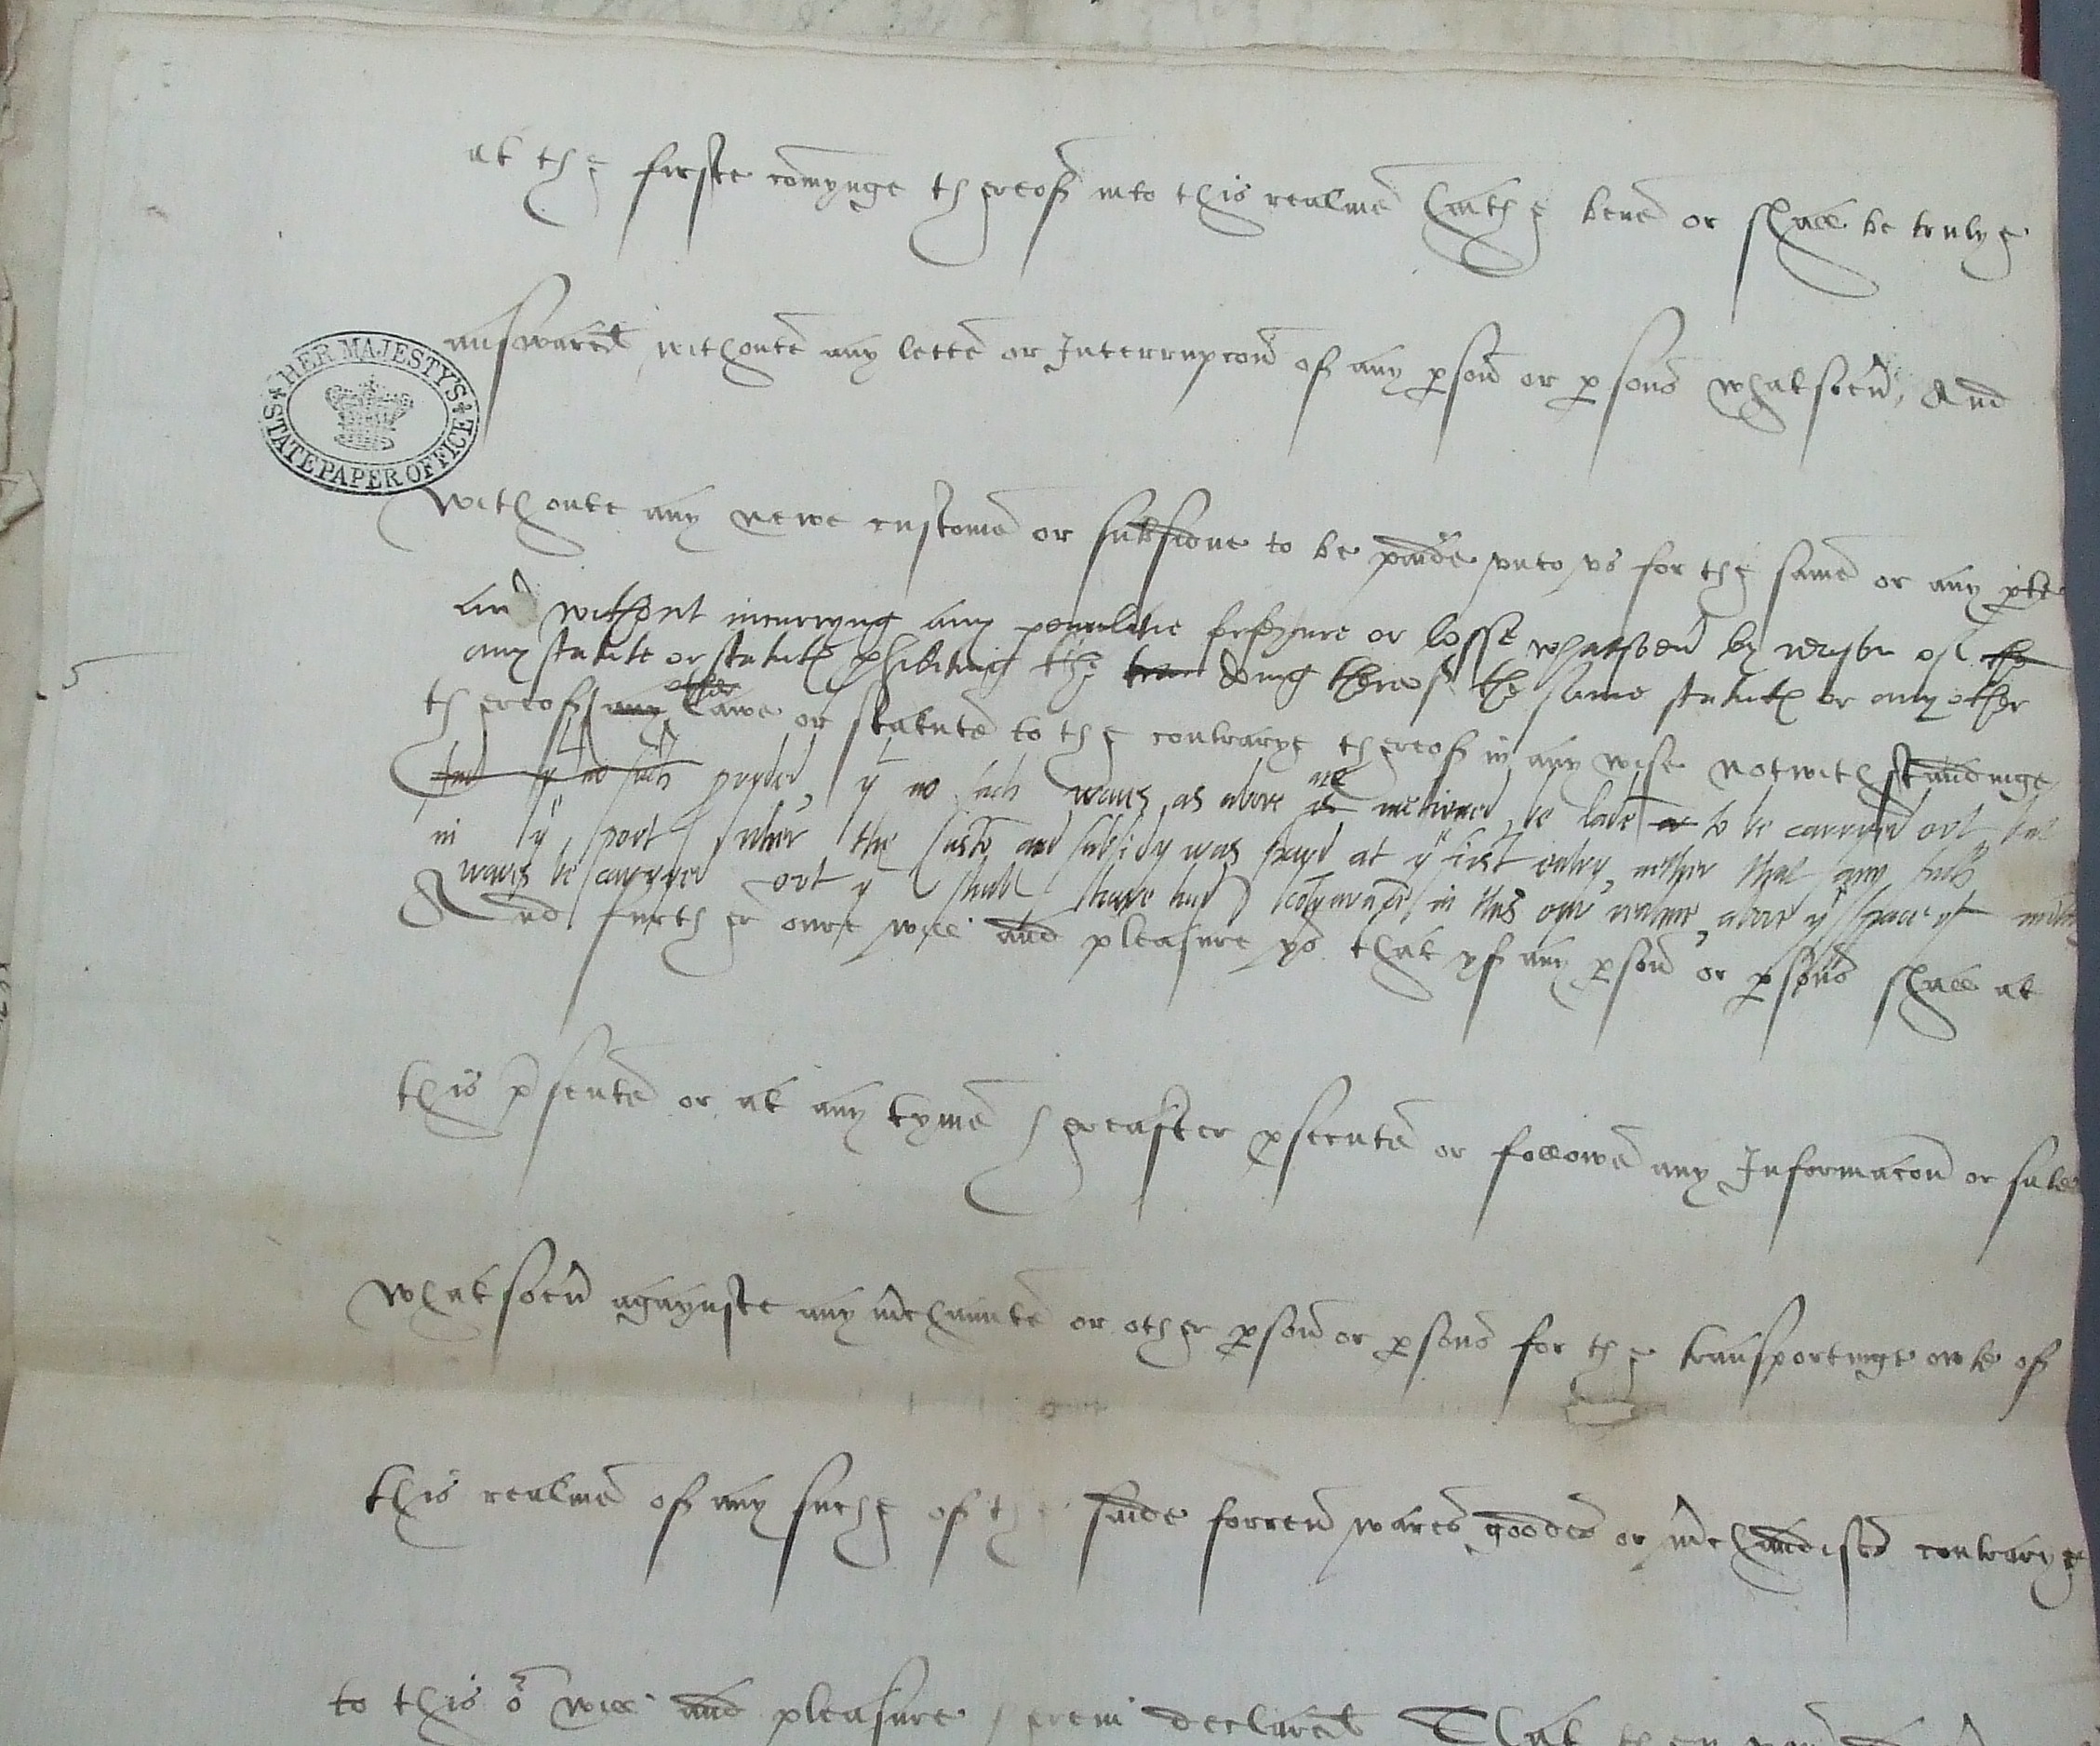 at the firste comynge thereof into this realme hathe bene or shall be trulye
answared withoute any lette or Interrupcon of any pson or psons whatsoeu, And
HER MAJESTY'S STATE PAPER OFFICE
withoute any newe custome or subsidue to be paide vnto vs for the same or any pte
and without incurryng any penaltie forfayture or losse whatsoeu by reason of the
any statute or statut phibiting the doing thereof the same statut or any other
thereof any other lawe or statute to the contrarye thereof in any wise notwithstandinge
And yt no such proyded, yt no such wares as above is are mentioned be lade or to be carryed out, but
in ye port wher the custo and subsidy was payd at ye first entry, nether that any such
wares be carryed out yt shall have had contynuance in this our realme, above ye space of
And further oure will and pleasure ys that yf any pson or psons shall at
this psente or at any tyme hereafter psecute or followe any Informacon or sute
whatsoeu agaynste any mchaunte or other pson or psons for the transportinge oute of
this realme of any suche of the saide forren wares goodes or mchandises contrarye
to this or will and pleasure herein declared That they